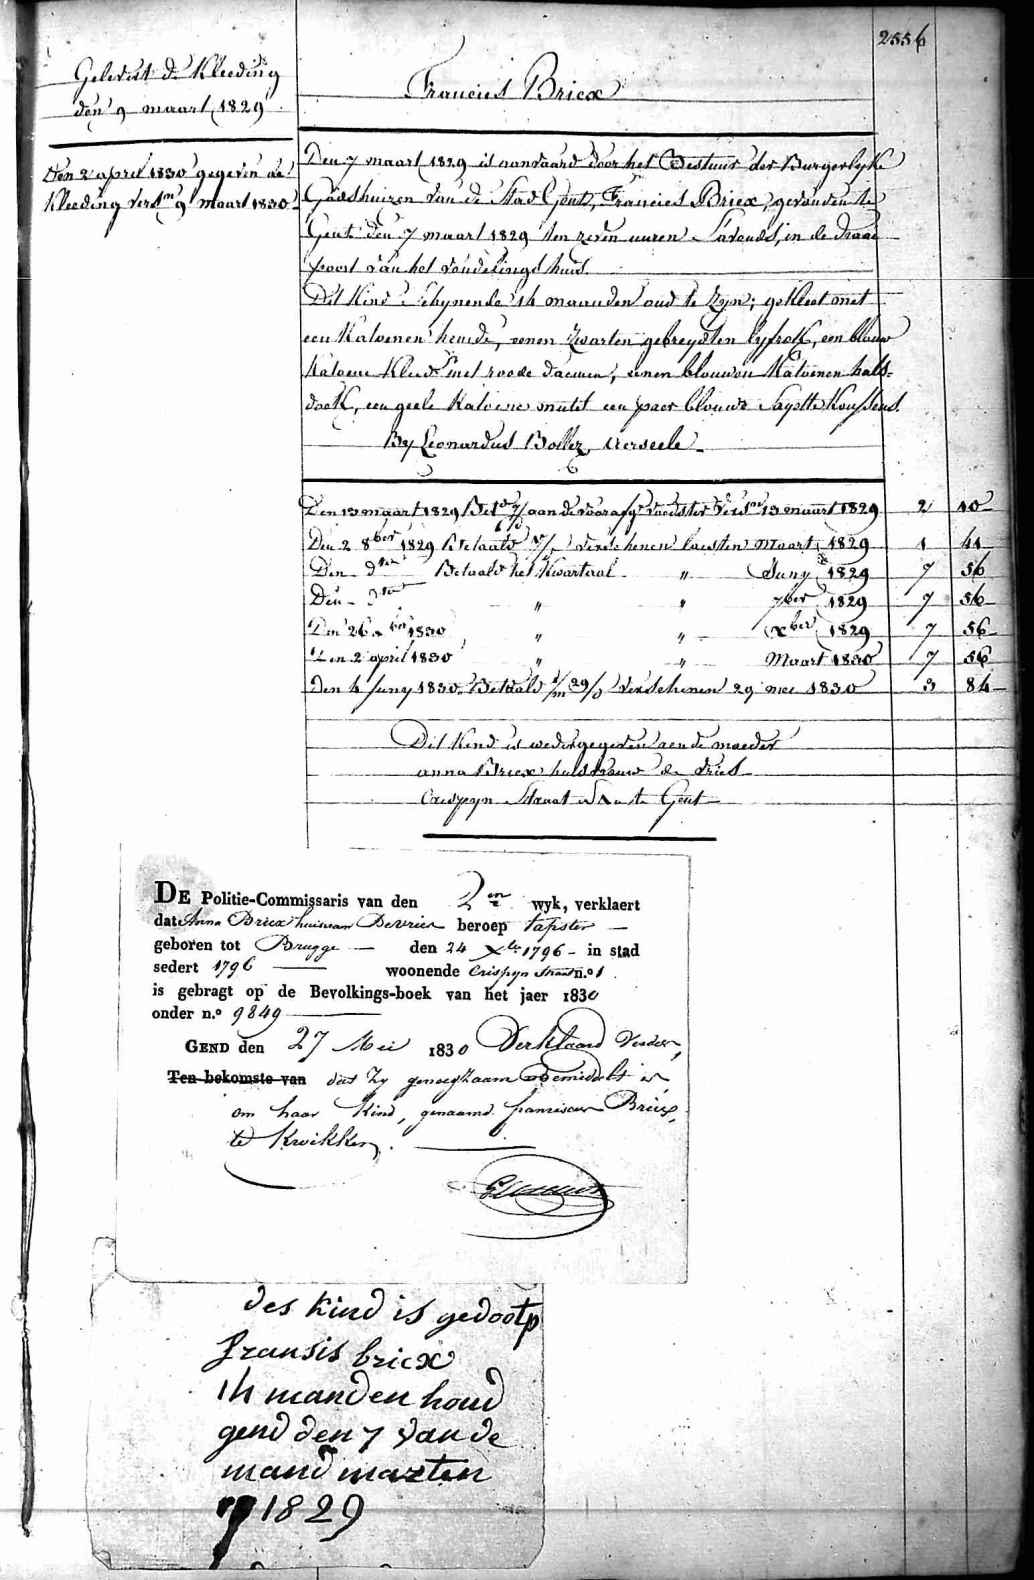 2556
Gelevert de Kleeding
den 9 maart 1829
Den 2 april 1830 gegeven de
Kleeding versn 9 maart 1830
Francies Briex
Den 7 maart 1829 is aanvaard door het Bestuur der Burgerlyke
Godshuizen van de Stad Gent, Francies Briex, gevonden te
Gent den 7 maart 1829 ten zeven uuren S'avonds, in de draai
poort van het vondelingshuis.
Dit Kind schynende 14 maanden oud te zyn; gekleet met
een Katoenen hemde, eenen zwarten gebreyden lyfrok, een blauw
Katoene Kleed met roode daemen, eenen blouwen Katoenen hals-
doek, een geele Katoene mutst een paer blouwe Sayette Koussens.
By Leonardus Bollez, Uerseele
Den 13 maart 1829 Bet aan de voorafge voedster vern 13 maart 1829 2 10
Den 2 8ber 1829 Betaald verschenen laesten maart 1829 1 41
Den do Betaald het Kwartaal " Juny 1829 7 56
Den do " " 7ber 1829 7 56
Den 26 1830 " " xber 1829 7 56
Den 2 april 1830 " " Maart 1830 7 56
Den 4 Juny 1830 Betaald 29/ verschenen 29 mei 1830 3 84
Dit Kind is wedergegeven aen de moeder
anna Briex huisvrouw de Vries
Crispyn Straat te Gent
DE Politie-Commissaris van den 2en wyk, verklaert
dat Anna Briex huisvrw Devries beroep tapster
geboren tot Brugge den 24 Xber 1796 in stad
sedert 1796 woonende Crispyn Straat n.o 1
is gebragt op de Bevolkings-boek van het jaer 1830
onder n.o 9849
GEND den 27 Mei 1830 Verklaard Verder,
Ten bekomste van dat zy genoegzaam bemiddelt is
om haar Kind, genaamd franciscus Briex,
te Kwikken.
des kind is gedootp
fransis briex
14 manden houd
gend den 7 van de
mand marten
1829